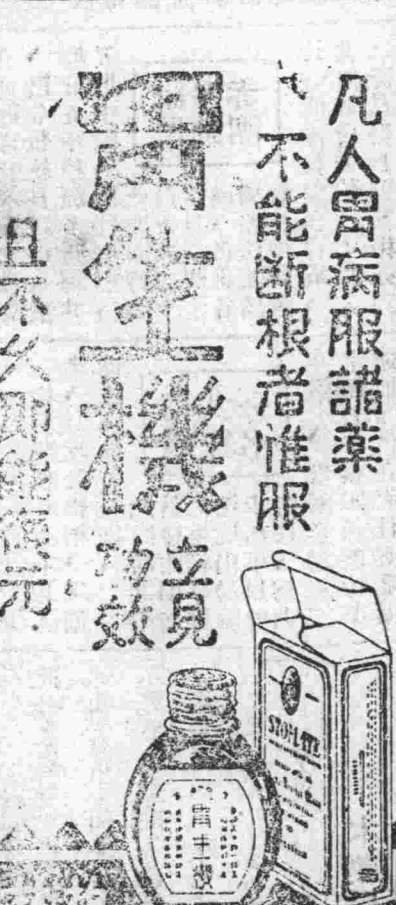 凡人胃病服諸薬
不能断根者惟服
胃生機
立見
功效
且不久即能復元
胃生機